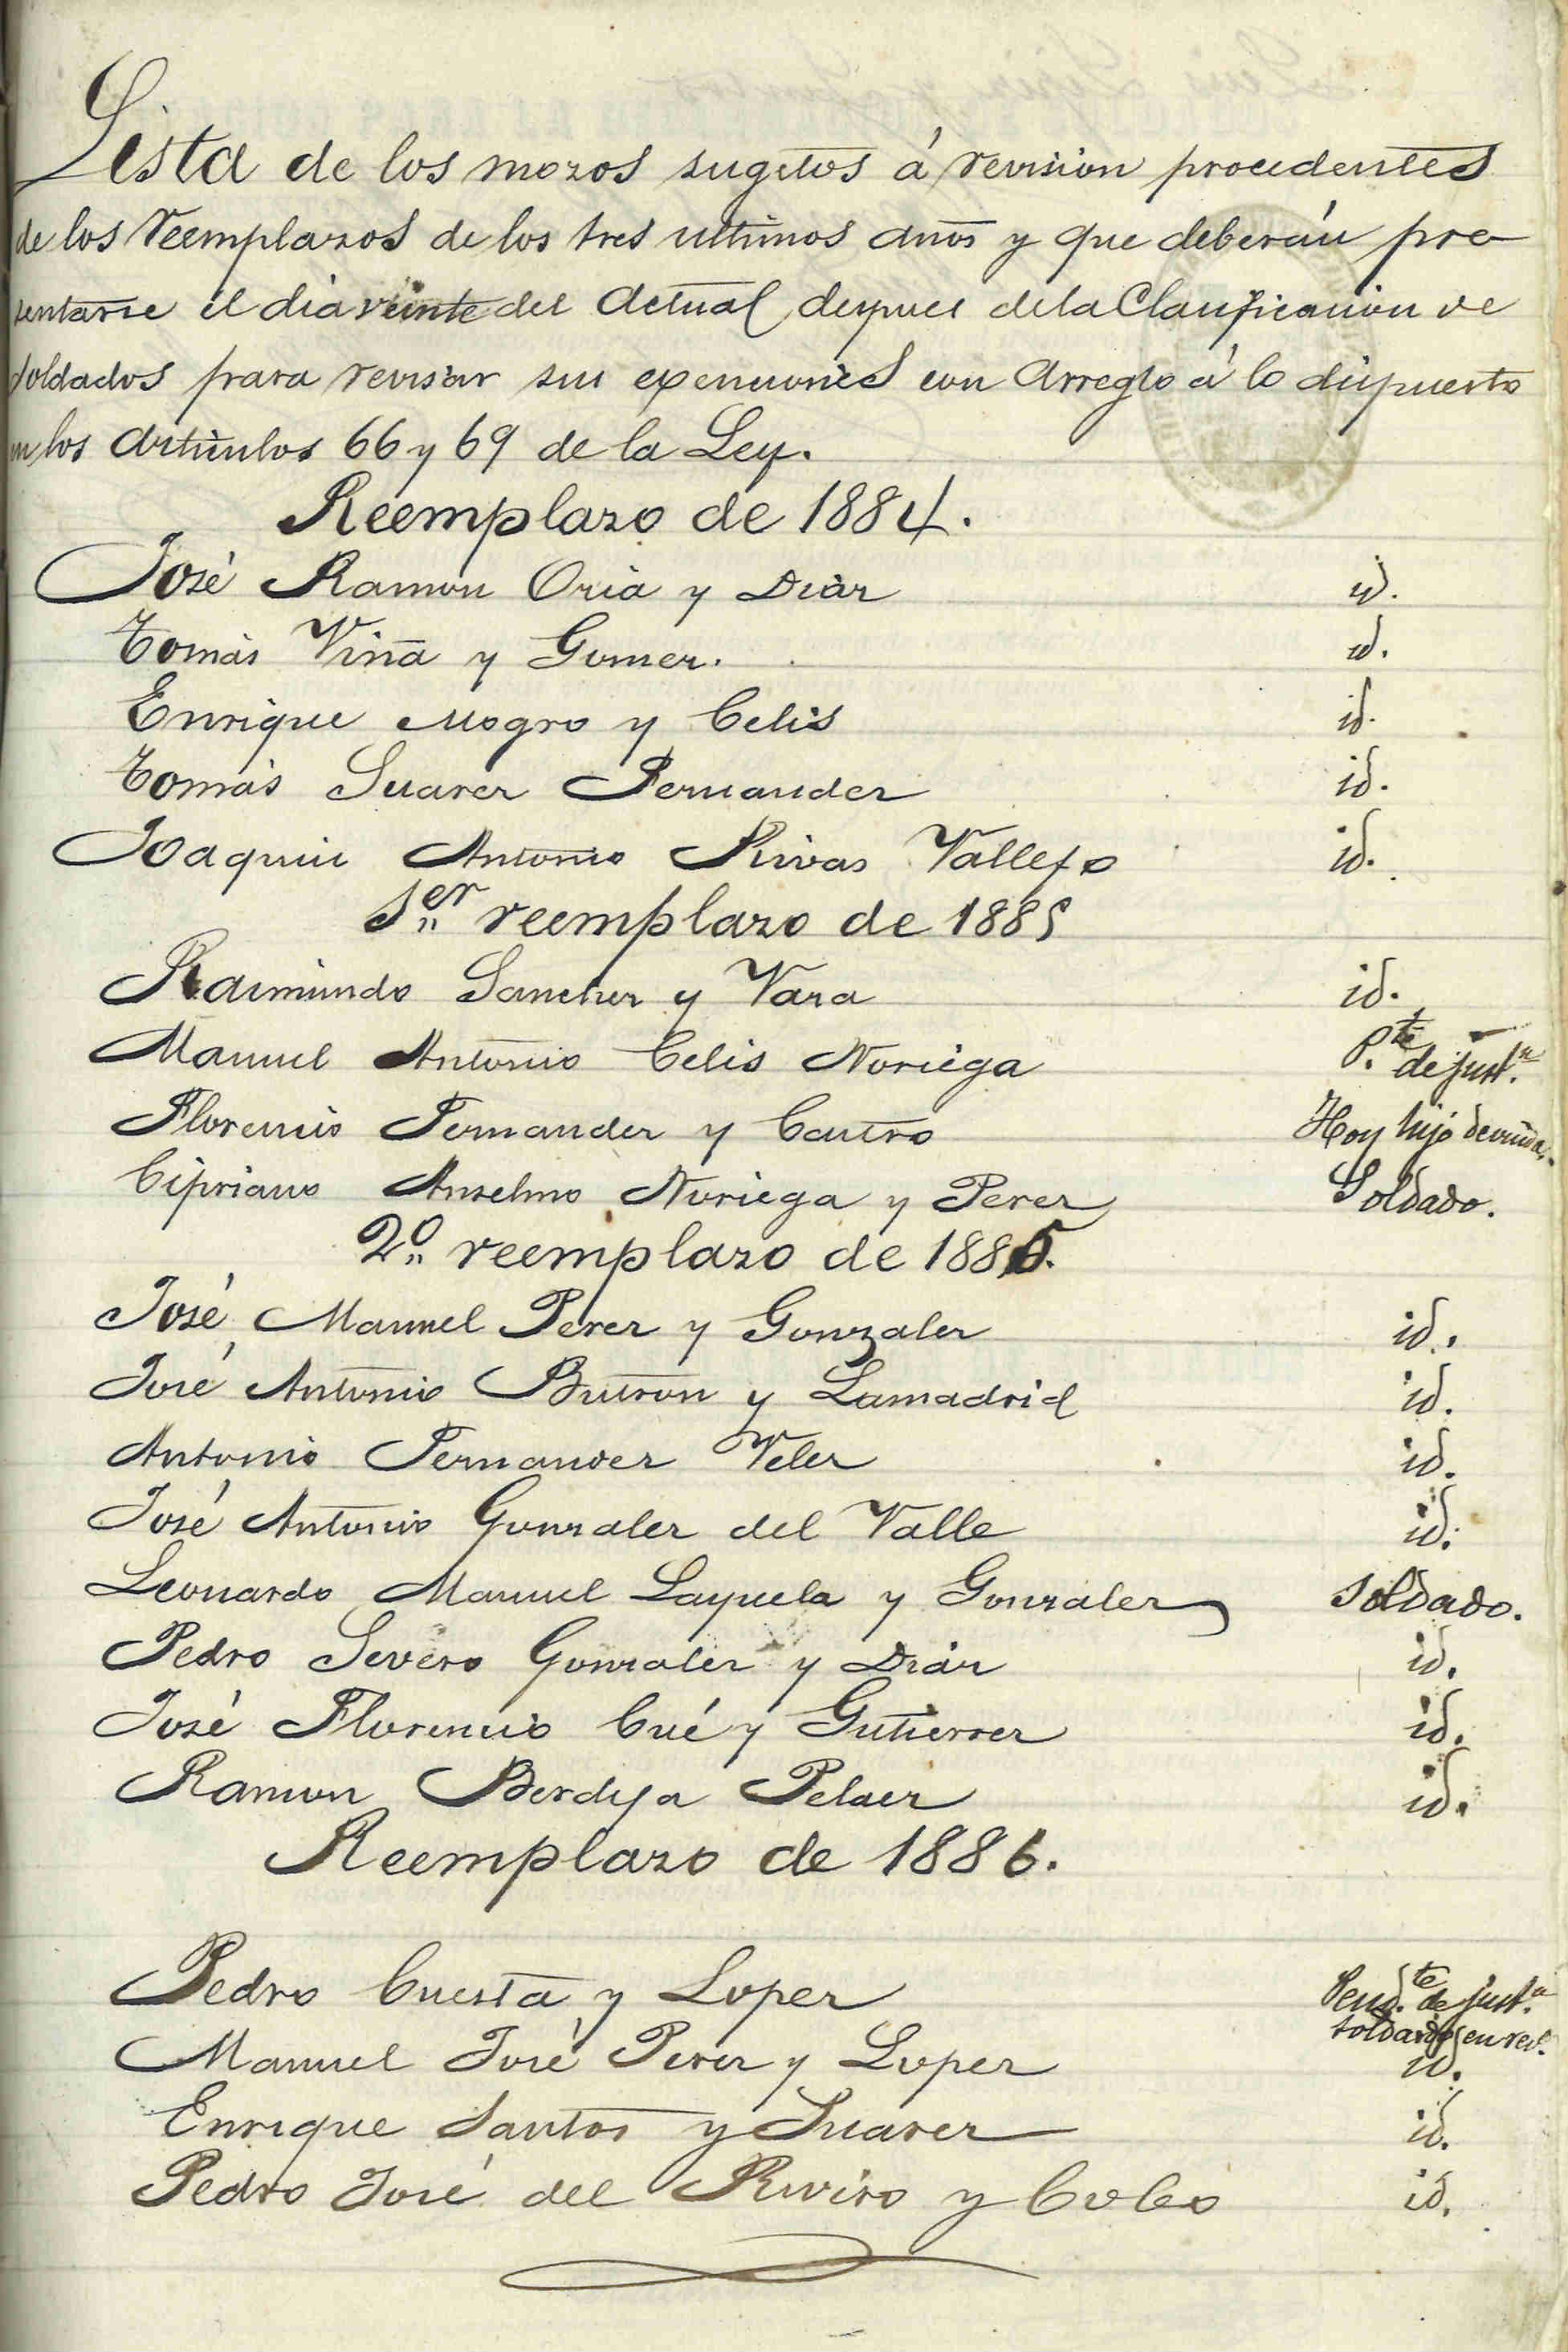 Lista de los mozos sugetos á revision procedentes
de los Reemplazos de los tres ultimos años y que deberán pre
sentarse el dia veinte del actual depues de la Clasificacion de
soldados para revisar sus exenciones con arreglo á lo dispuesto
en los articulos 66 y 69 de la Ley.
Reemplazo de 1884.
José Ramon Oria y Diáz id.
Tomás Viña y Gomez. id.
Enrique Mogro y Celis id.
Tomás Suarez Fernandez id.
Joaquin Antonio Rivas Vallejo id.
1er reemplazo de 1885
Raimundo Sanchez y Vara id.
Manuel Antonio Celis Noriega P.te de just.n
Florencio Fernandez y Castro Hoy hijo de viuda.
Cipriano Anselmo Noriega y Perez Soldado.
2o reemplazo de 1885.
José Manuel Perez y Gonzalez id.
José Antonio Butron y Lamadrid id.
Antonio Fernandez Velez id.
José Antonio Gonzalez del Valle id.
Leonardo Manuel Layuela y Gonzalez Soldado.
Pedro Severo Gonzalez y Diáz id.
José Florencio Cué y Gutierrez id.
Ramon Berdeja Pelaez id.
Reemplazo de 1886.
Pedro Cuesta y Lopez Pend.te de just.n
soldado en rev.
Manuel José Perez y Lopez id.
Enrique Santos y Suarez id.
Pedro José del Rivero y Cobo id.